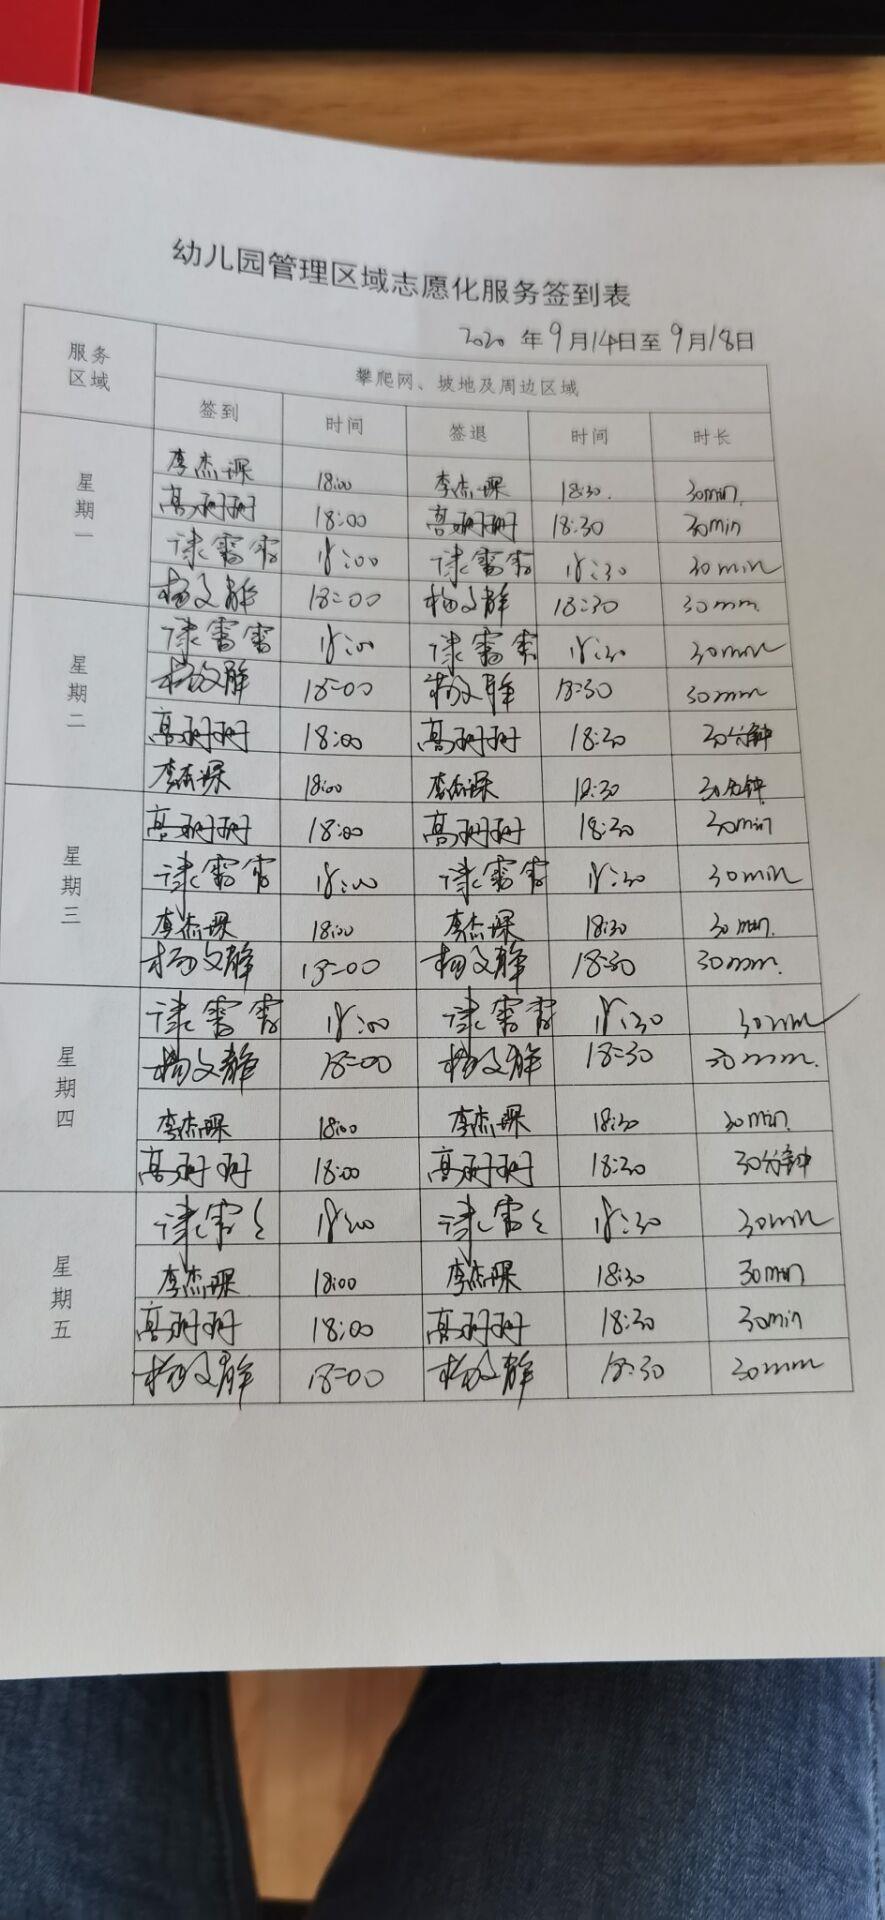 幼儿园管理区域志愿化服务签到表
2020 年 9 月 14 日至 9 月 18 日
服务区域 攀爬网、坡地及周边区域
签到 时间 签退 时间 时长
星期一
李杰琛 18:00 李杰琛 18:30. 30min.
高珊珊 18:00 高珊珊 18:30 30min
雷雷 18:00 雷雷 18:30 30min
杨文静 18:00 杨文静 18:30 30min.
星期二
雷雷 18:00 雷雷 18:30 30min
杨文静 18:00 杨文静 18:30 30min
高珊珊 18:00 高珊珊 18:30 30分钟
李杰琛 18:00 李杰琛 18:30 30分钟
星期三
高珊珊 18:00 高珊珊 18:30 30min
雷雷 18:00 雷雷 18:30 30min
李杰琛 18:00 李杰琛 18:30 30min.
杨文静 18:00 杨文静 18:30 30min.
星期四
雷雷 18:00 雷雷 18:30 30min
杨文静 18:00 杨文静 18:30 30min.
李杰琛 18:00 李杰琛 18:30 30min.
高珊珊 18:00 高珊珊 18:30 30分钟
星期五
雷 18:00 雷 18:30 30min
李杰琛 18:00 李杰琛 18:30 30min
高珊珊 18:00 高珊珊 18:30 30min
杨文静 18:00 杨文静 18:30 30min